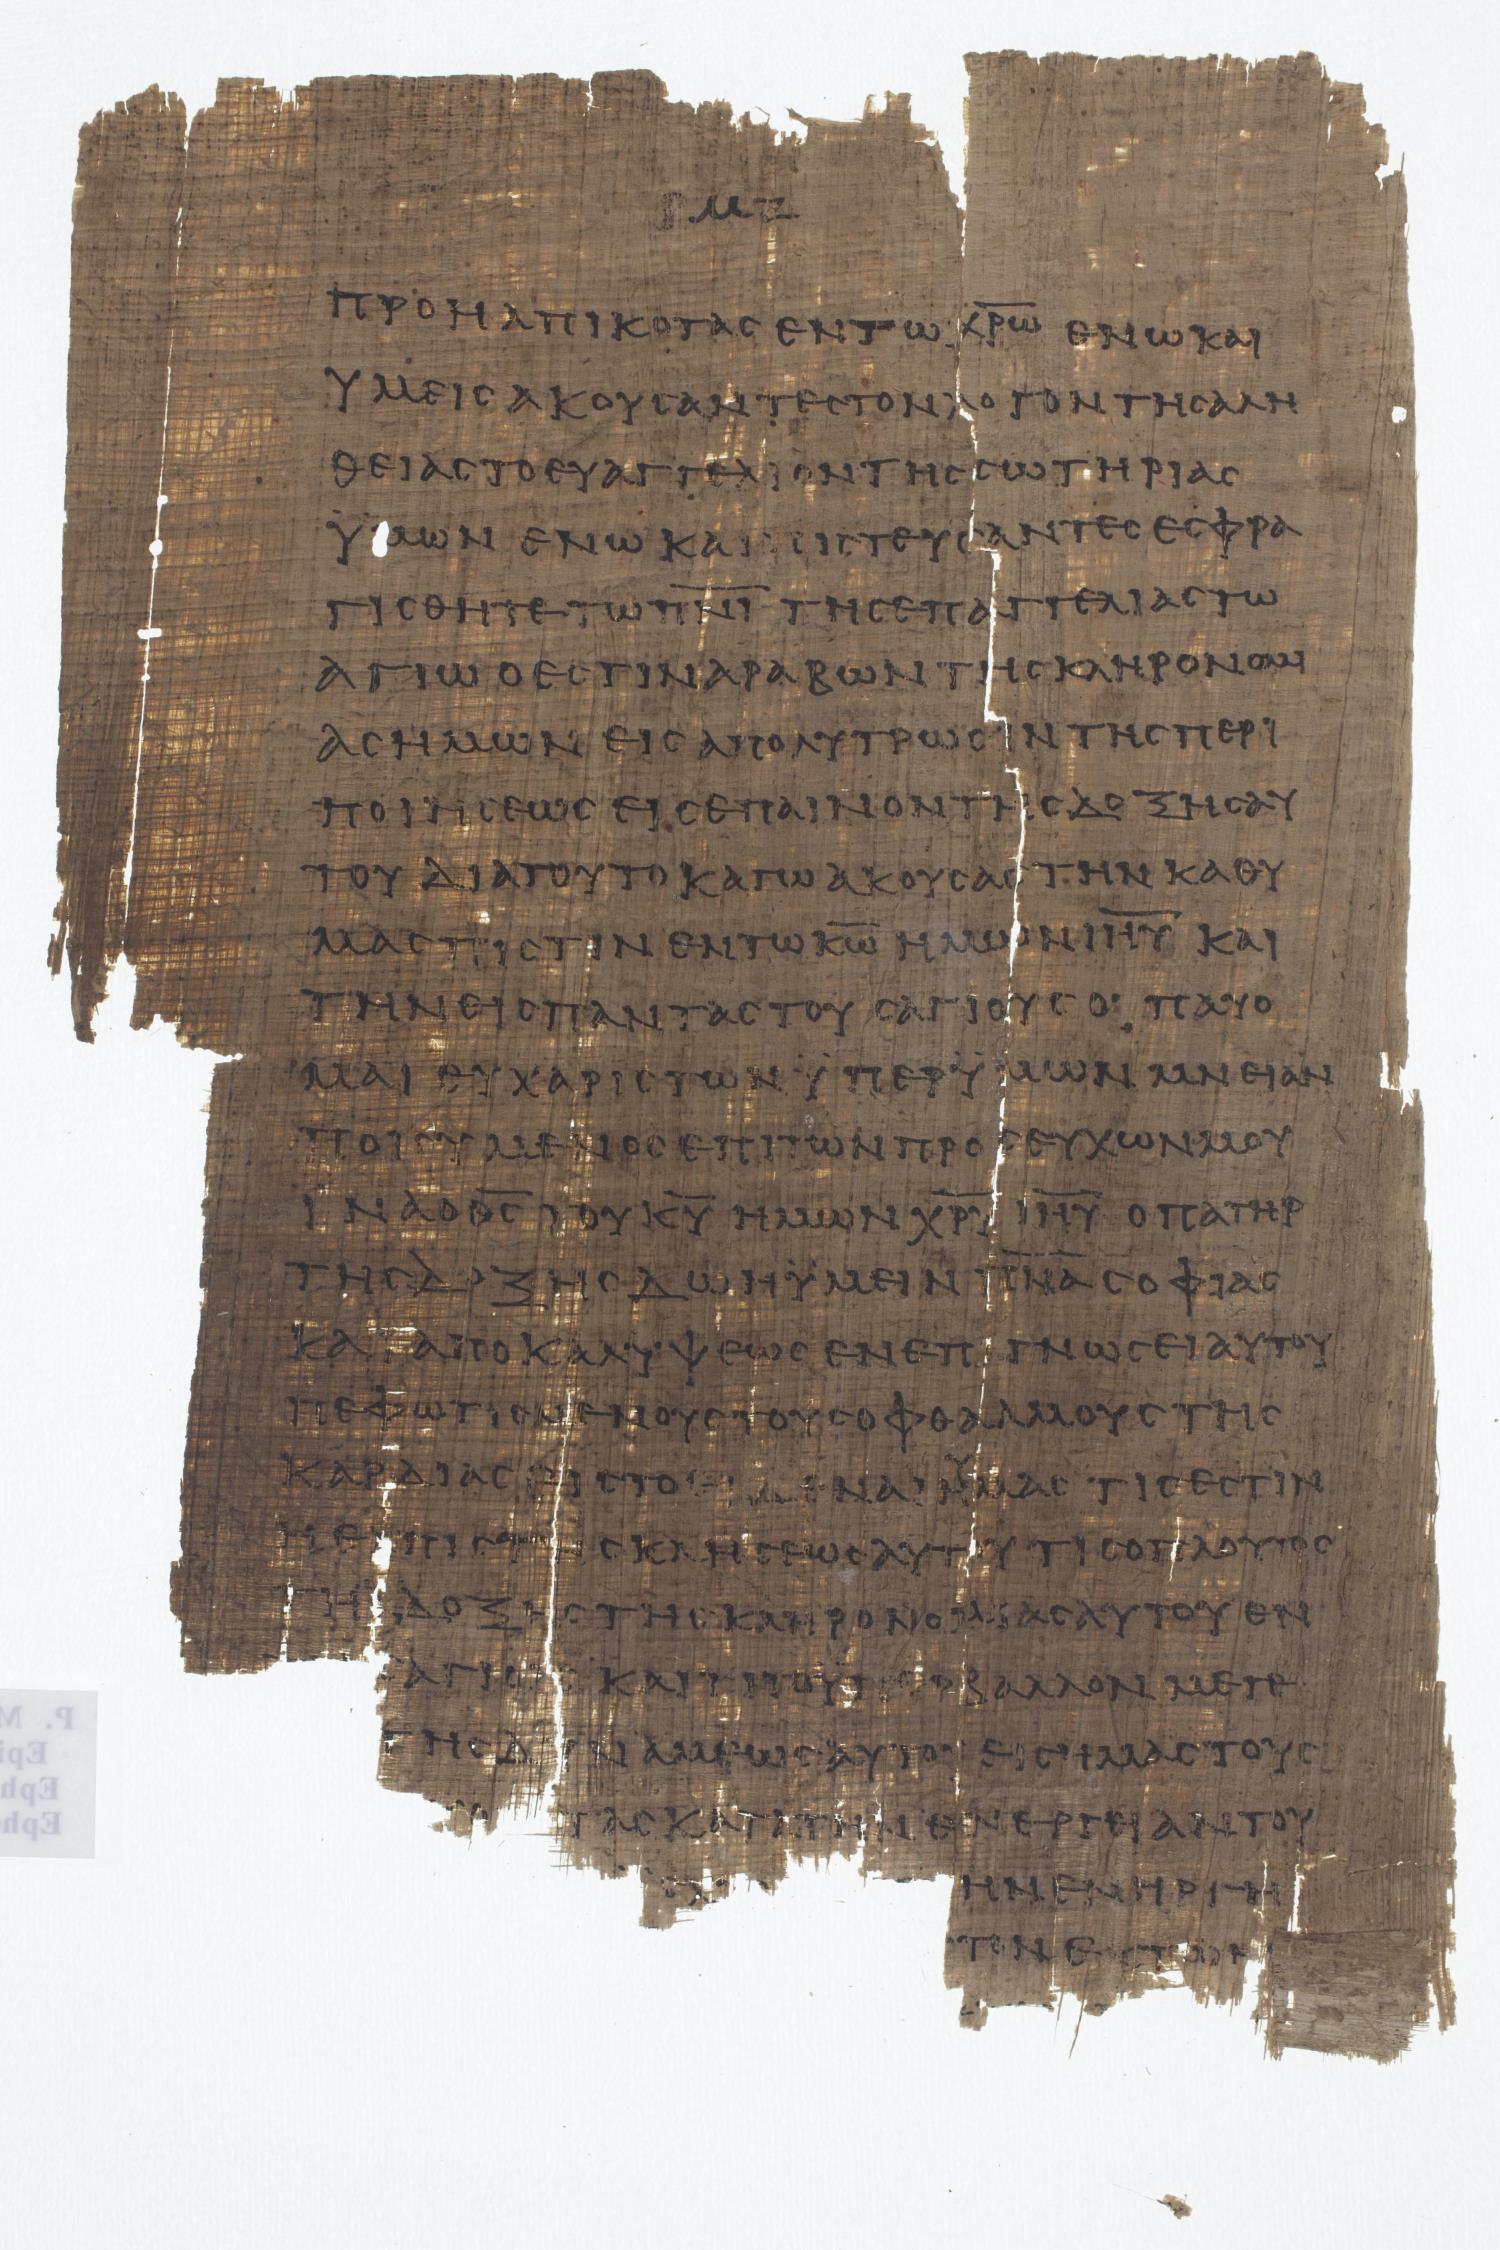 ρμζ
προηλπικοτας εν τω χρω εν ω και
υμεις ακουσαντες τον λογον της αλη
θειας το ευαγγελιον της σωτηριας
ϋμων εν ω και πιστευσαντες εσφρα
γισθητε τω πνι της επαγγελιας τω
αγιω ο εστιν αραβων της κληρονομι
ας ημων εις απολυτρωσιν της περι
ποιησεως εις επαινον της δοξης αυ
του δια τουτο καγω ακουσας την καθ υ
μας πιστιν εν τω κω ημων ιηυ και
την εις παντας τους αγιους ου παυο
μαι ευχαριστων ϋπερ ϋμων μνειαν
ποιουμενος επι των προσευχων μου
ινα ο θς του κυ ημων χρυ ιηυ ο πατηρ
της δοξης δωη ϋμειν πνα σοφιας
και αποκαλυψεως εν επιγνωσει αυτου
πεφωτισμενους τους οφθαλμους της
καρδιας εις το ειδεναι ϋμας τις εστιν
η ελπις της κλησεως αυτου τις ο πλουτος
της δοξης της κληρονομιας αυτου εν
αγιοις και τι το ϋπερβαλλον μεγε
της δυναμεως αυτου εις ημας τους
τας κατα την ενεργειαν του
ην ενηργη